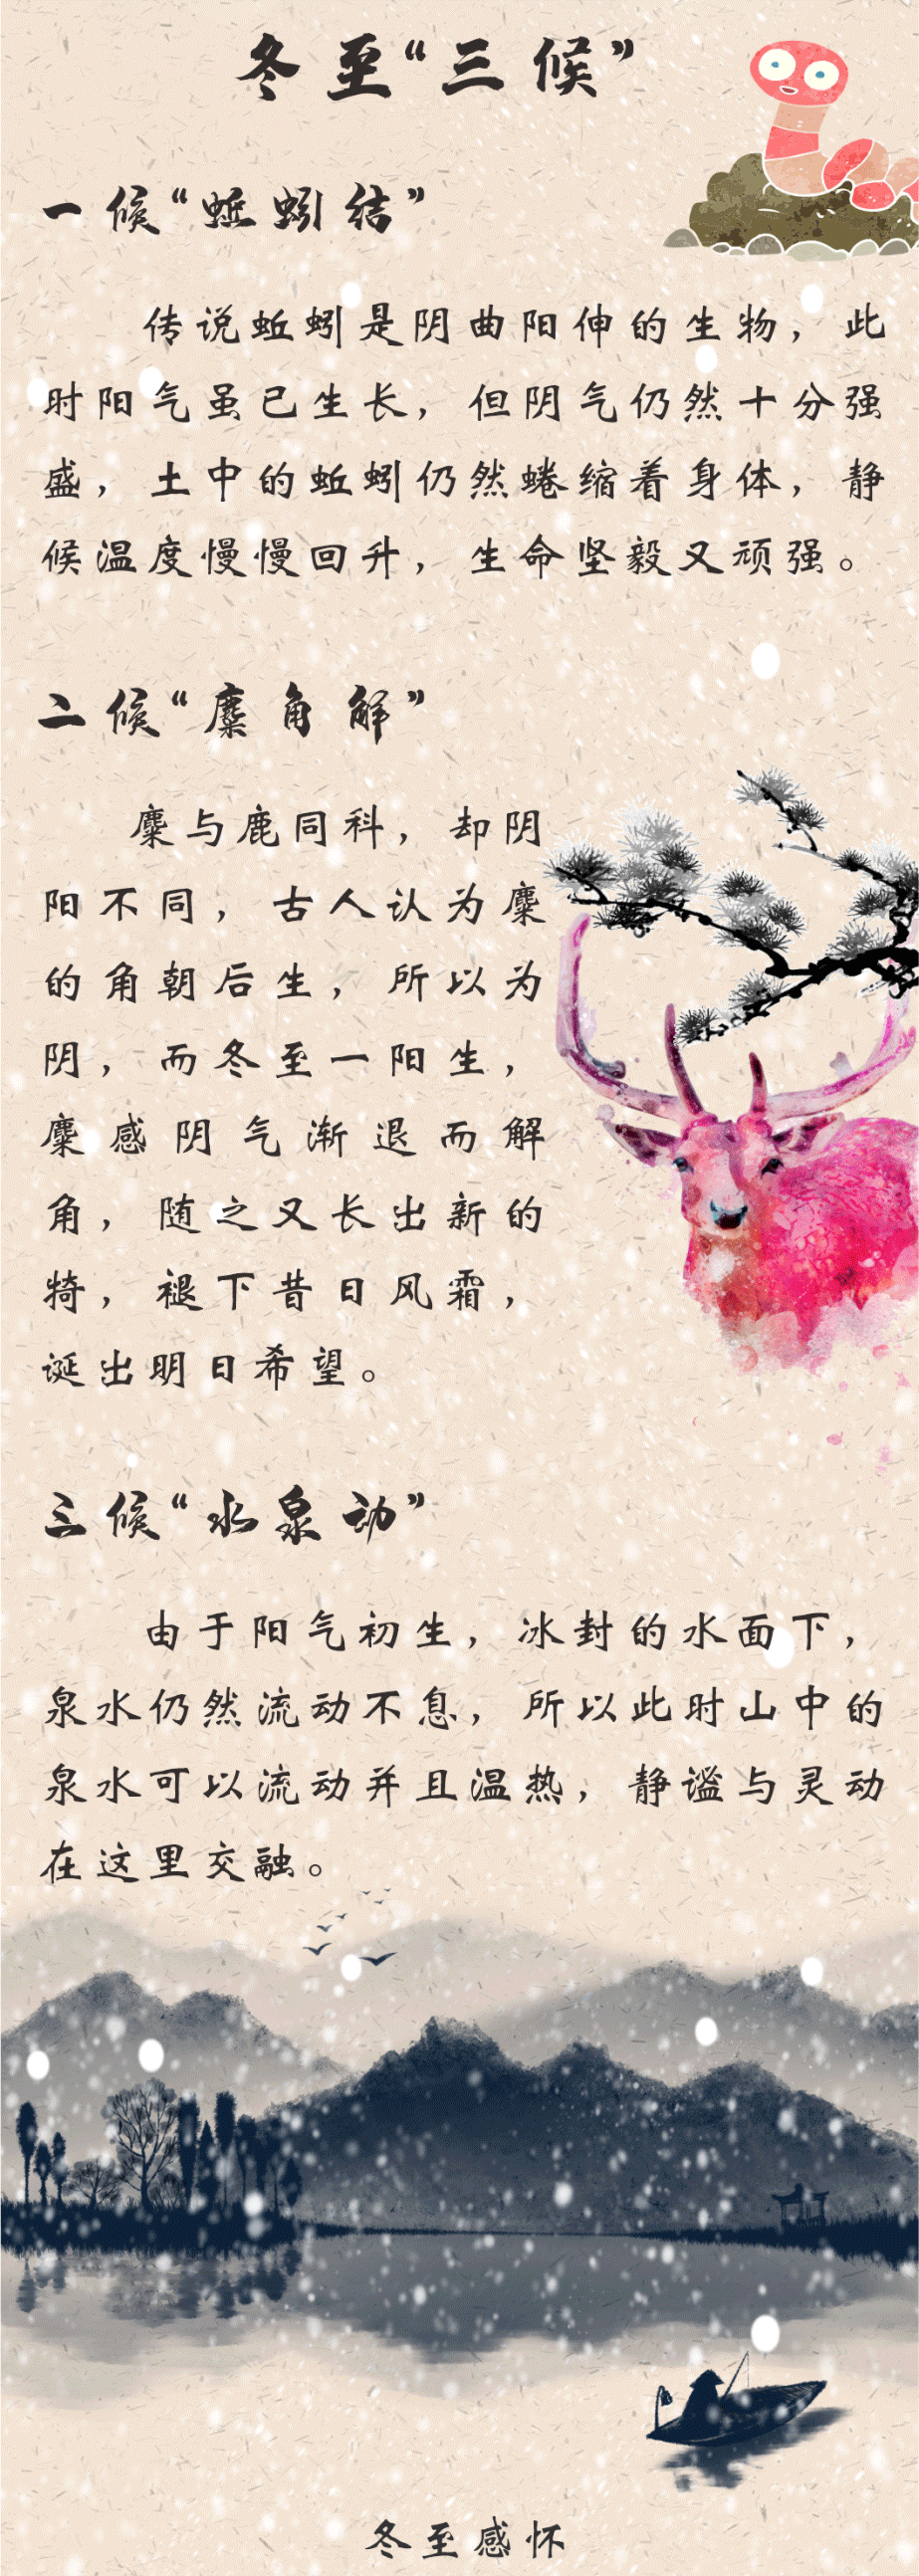 冬至“三候”
一候“蚯蚓结”
传说蚯蚓是阴曲阳伸的生物，此
时阳气虽已生长，但阴气仍然十分强
盛，土中的蚯蚓仍然蜷缩着身体，静
候温度慢慢回升，生命坚毅又顽强。
二候“麋角解”
麋与鹿同科，却阴
阳不同，古人认为麋
的角朝后生，所以为
阴，而冬至一阳生，
麋感阴气渐退而解
角，随之又长出新的
犄，褪下昔日风霜，
诞出明日希望。
三候“水泉动”
由于阳气初生，冰封的水面下，
泉水仍然流动不息，所以此时山中的
泉水可以流动并且温热，静谧与灵动
在这里交融。
冬至感怀